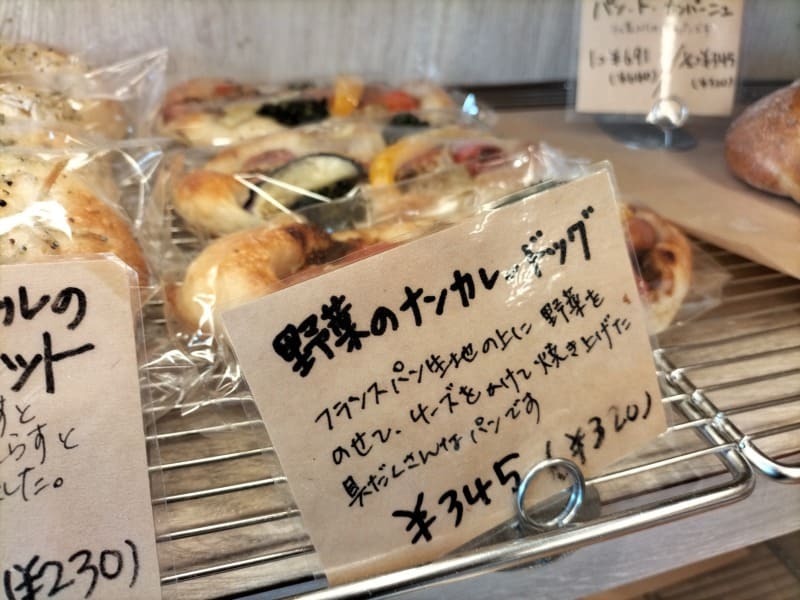 野菜のナンカレードッグ
フランスパン生地の上に野菜を
のせて、チーズをかけて焼き上げた
具だくさんなパンです
¥345 (¥320)
ルの
ット
すと
らすと
した。
(¥230)
パン・ド・カンパーニュ